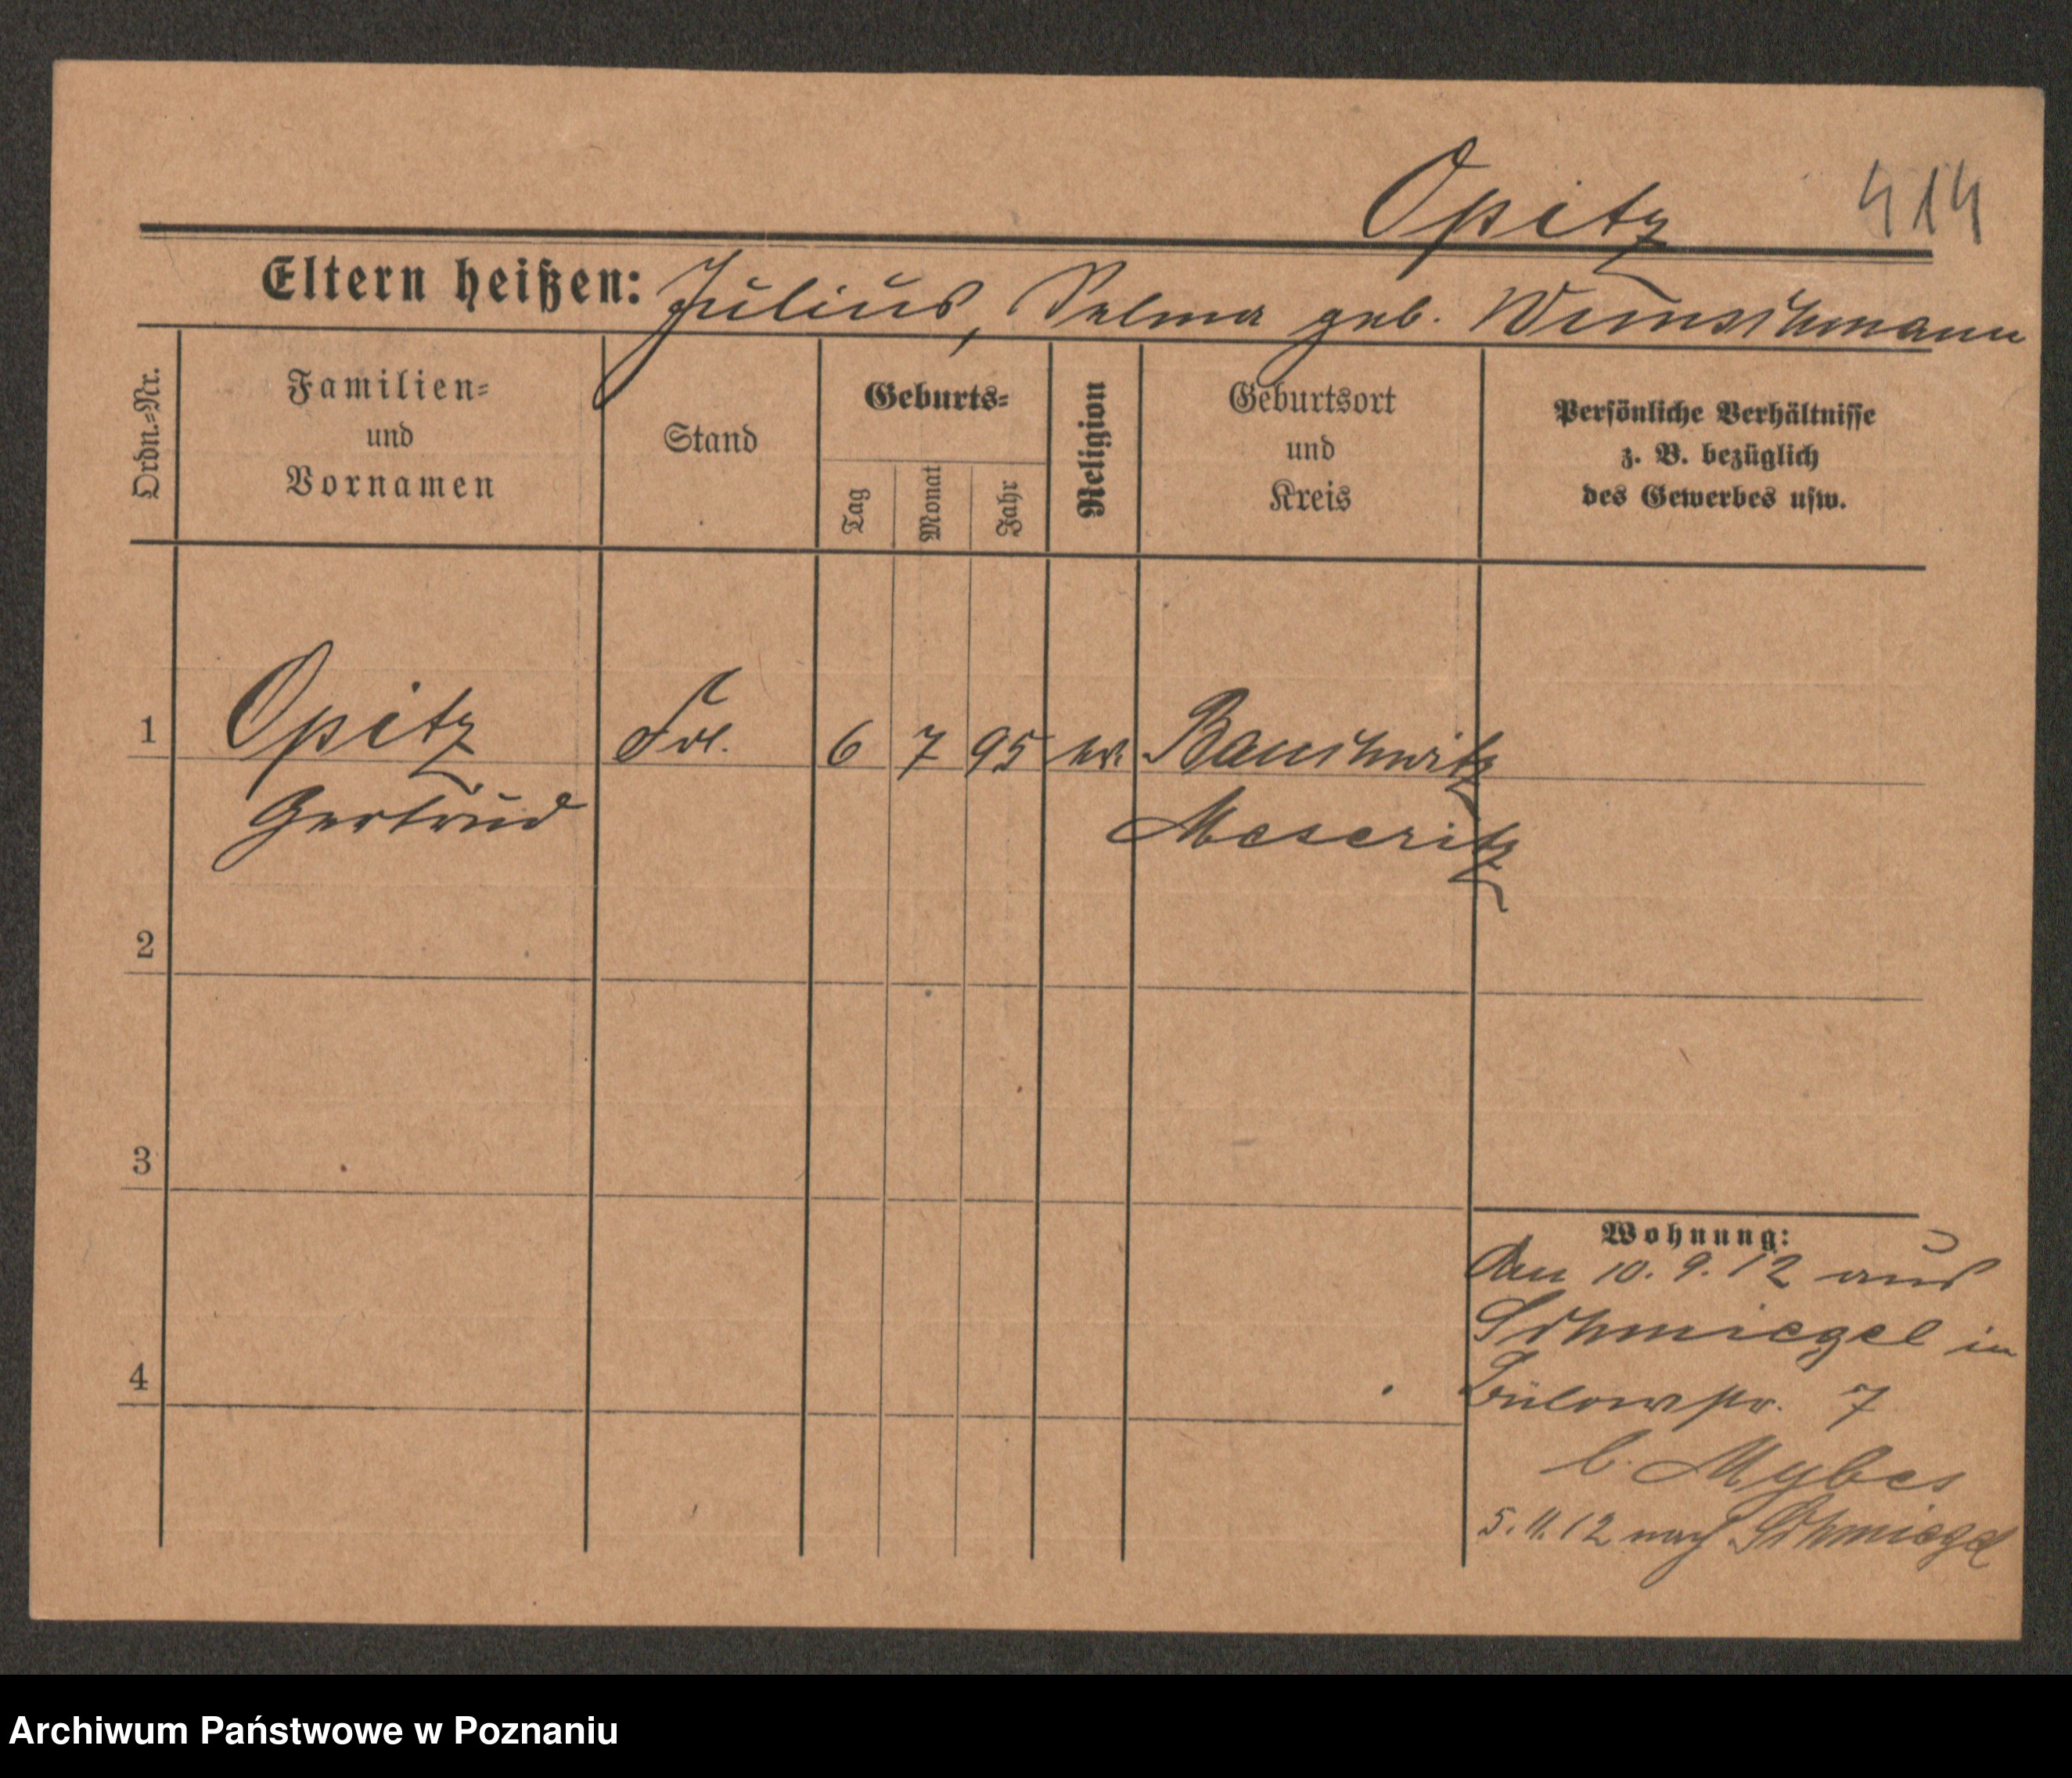 Opitz 414
Eltern heißen: Julius, Selma geb.
Ordn.=Nr.
Familien=
und
Vornamen
Stand
Geburts=
Tag
Monat
Jahr
Religion
Geburtsort
und
Kreis
Persönliche Verhältnisse
z. B. bezüglich
des Gewerbes usw.
1 Opitz Frl. 6 7 95 ev. Bauchwitz
Gertrud Meseritz
2
3
Wohnung:
Am 10. 9. 12 aus
Schmiegel in
4
Bülowstr. 7
b.
5. 11. 12 nach Schmiegel
Archiwum Państwowe w Poznaniu